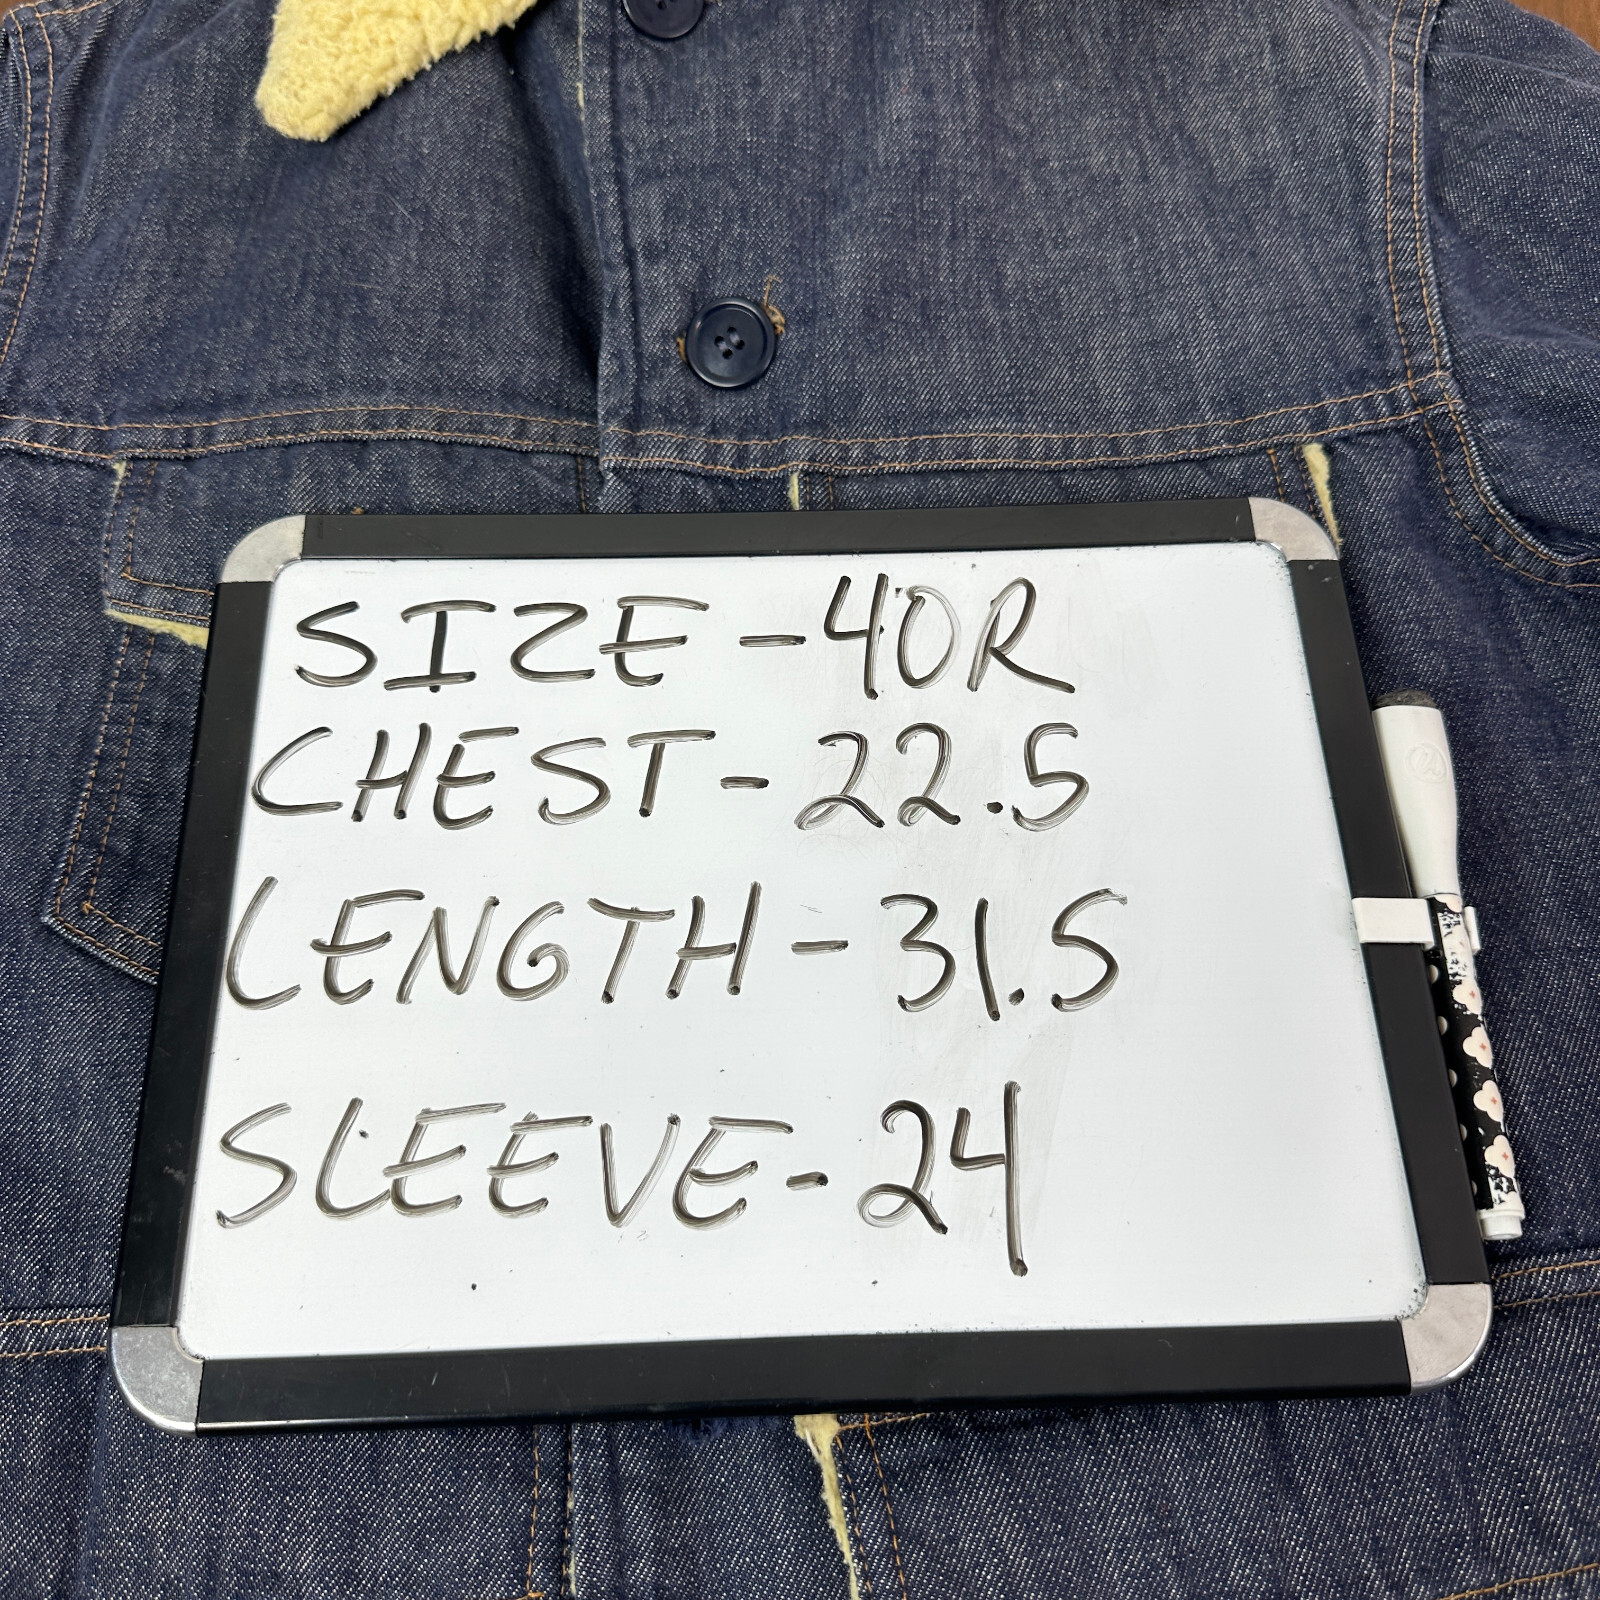 SIZE - 40R
CHEST - 22.5
LENGTH - 31.5
SLEEVE - 24